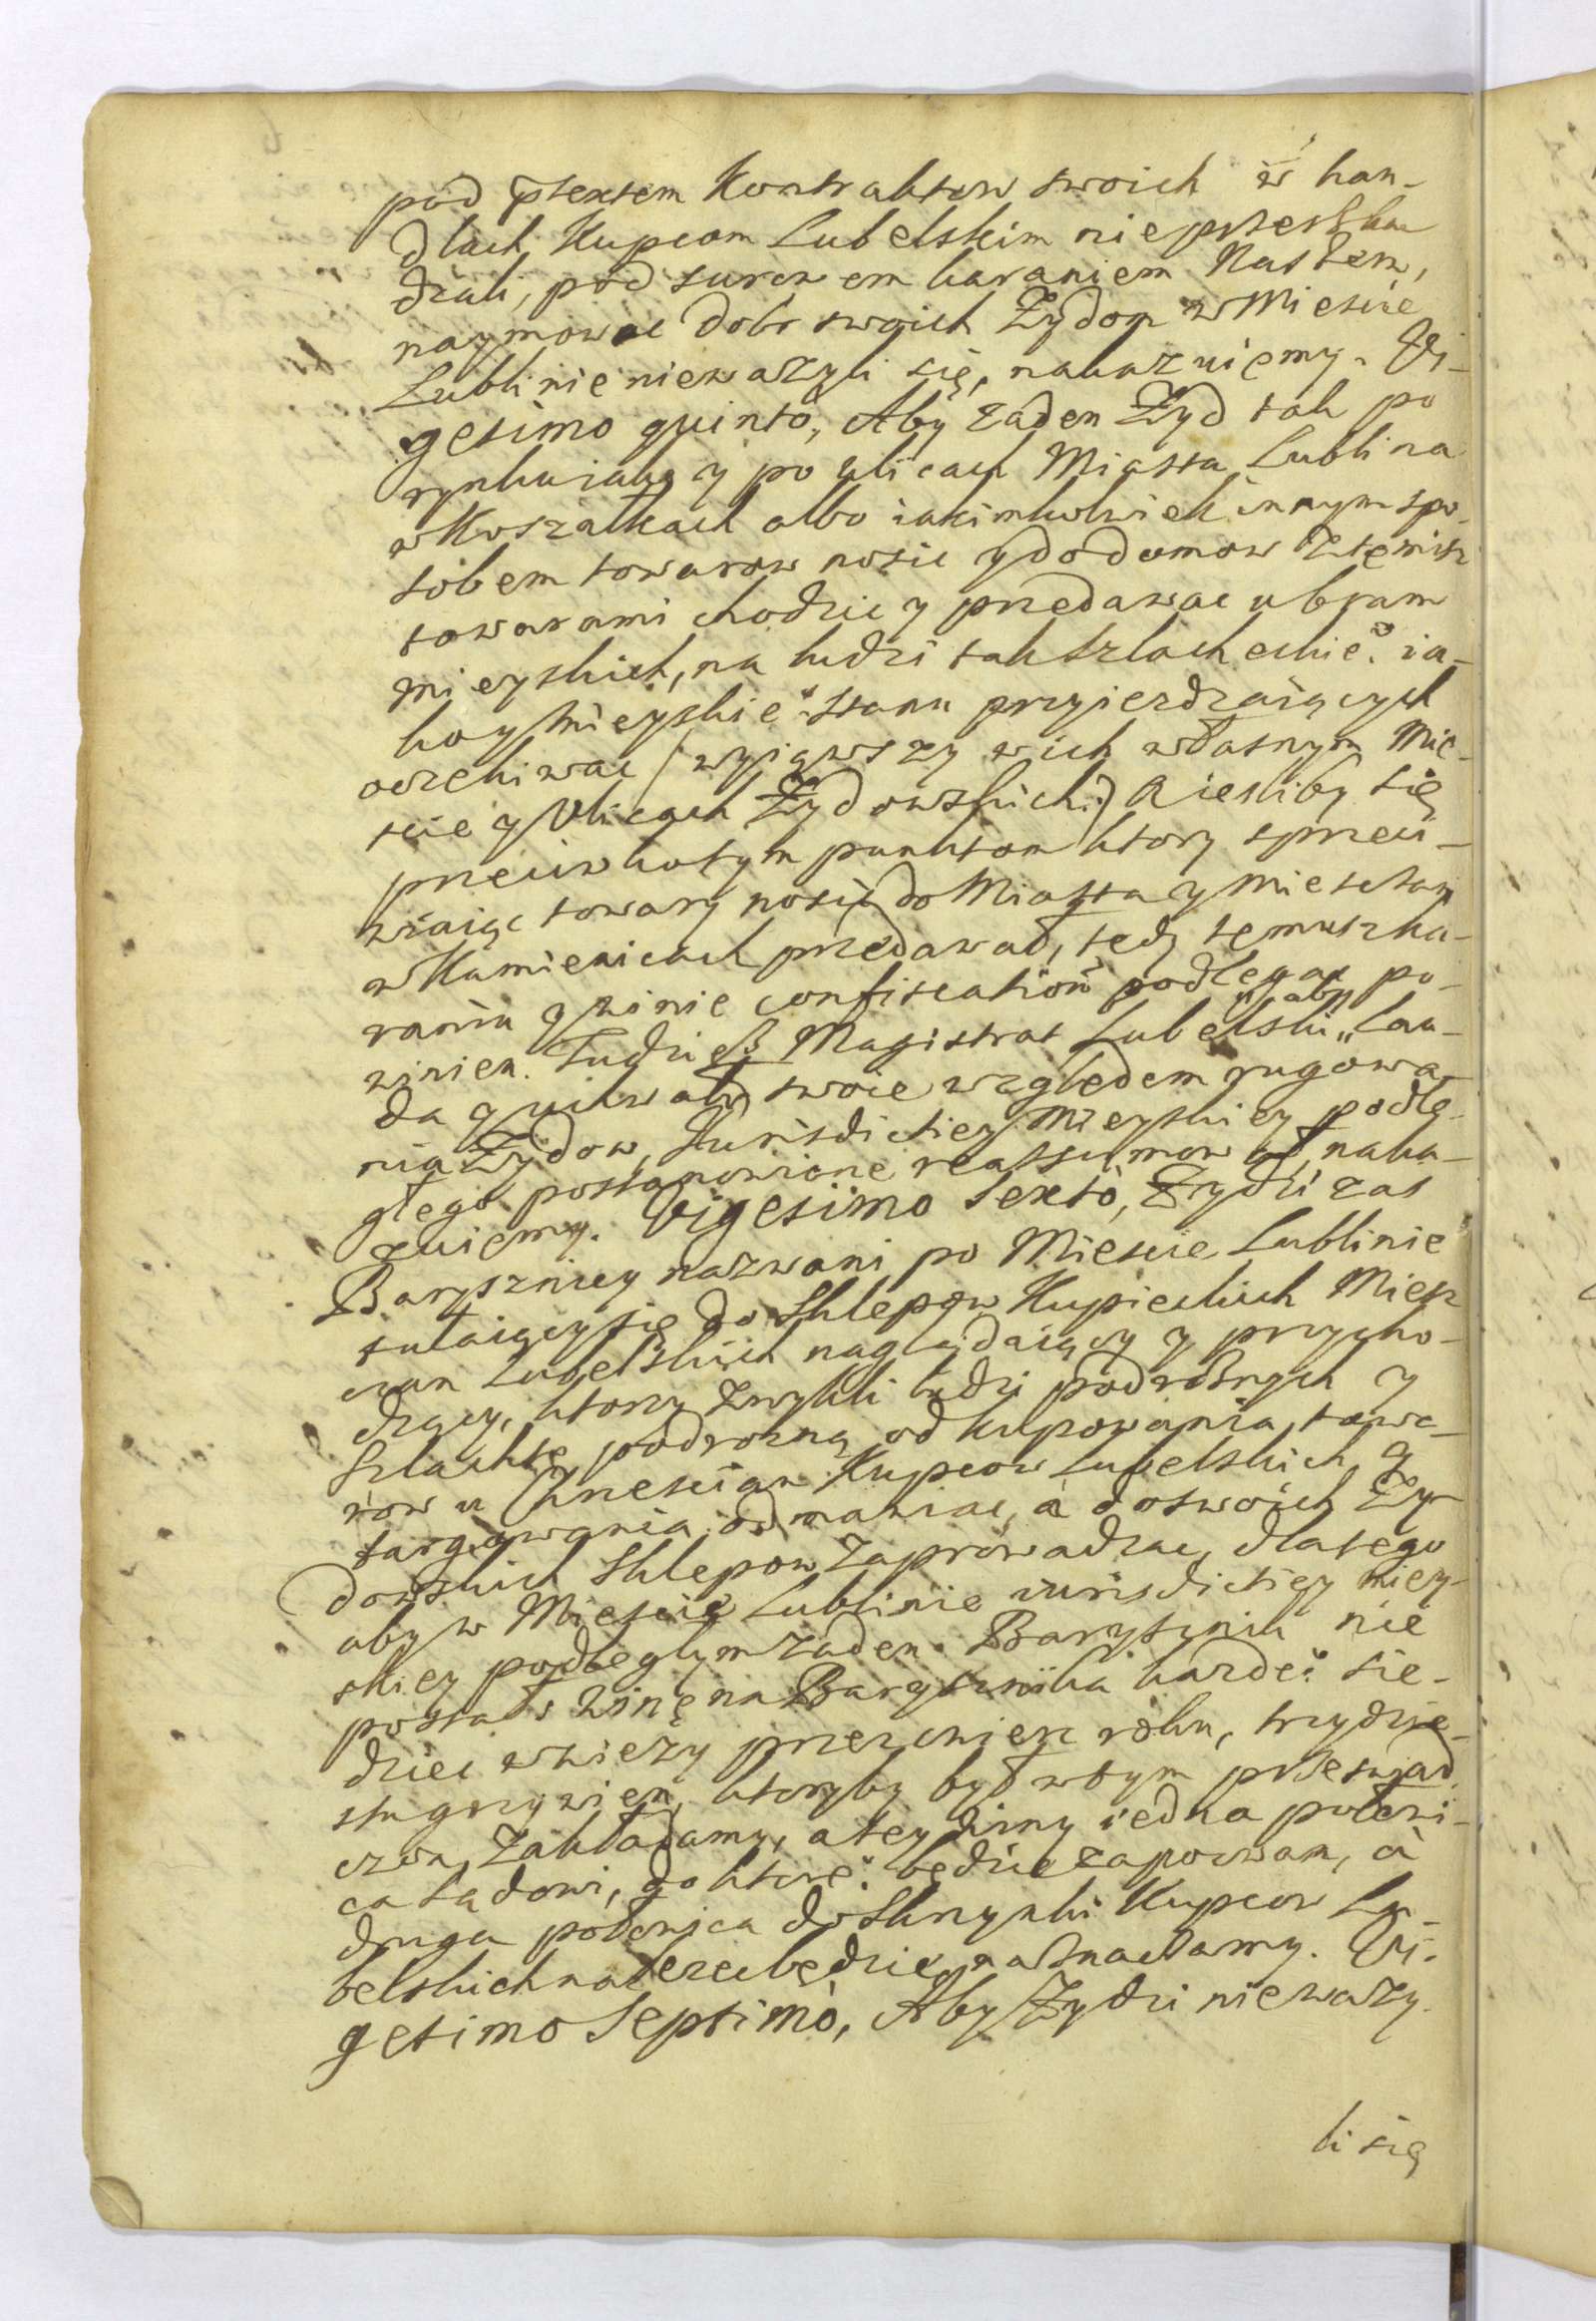 pod ptextem Kontraktow swoich w han-
dlach Kupcom Lubelskim nieprzeszka
dzali, pod surowem karaniem Naszem,
naymowac dobr swoich Zydom w Miescie
Lublinie niewazyli się, nakazuiemy. Vi-
gesimo quinto, Aby zaden Zyd tak po
rynku iako y po ulicach Miasta Lublina
w Koszałkach albo iakimkolwiek innym spo-
sobem towarow nosic y do domow z temisz
towarami chodzic y przedawac u bram
mieyskich, na ludzi tak szlacheckie° ia-
ko y Mieyskie° stanu przyiezdzaiących
oczekiwac (wyiąwszy w ich własnym Mie-
scie y Ulicach Zydowskich:) A iesliby się
przeciwko tym punktom ktory sprzeci-
wiaiąc towary nosił do Miasta y Mieszkan
w Kamienicach przedawał, tedy temusz ka-
raniu y winie confiscationis podlegac po-
winien. Tudziesz Magistrat Lubelski, aby Lau-
da y uchwały swoie względem rugowa-
nia Zydow, Jurisdictiey Mieyskiey podle-
głego postanowione reassumował, naka-
zuiemy. Vigesimo Sexto, Zydzi zas
Barysznicy nazwani po Miescie Lublinie
tułaiący się do Sklepow Kupieckich Miesz
czan Lubelskich naglądaiący y przycho-
dzący, ktorzy zwykli ludzi podroznych y
Szlachte podrozną od kupowania towa-
row u Chrzescian Kupcow Lubelskich, y
targowania odmawiac, à do swoich Zy-
dowskich Sklepow zaprowadzac, dlatego
aby w Miescie Lublinie iurisdictiey miey-
skiey podległym zaden Barysznik nie
postał, winę na Barysznika kazde° sie-
dziec w wiezy przez cwierc roku, trzydzie-
stu grzywien, ktoryby był w tym przeswiad
czon zakładamy, a tey winy iedna połowi-
ca sądowi, do ktore° będzie zapozwan, à
druga połowica do Skrzynki Kupcow Lu-
belskich nalezec będzie, naznaczamy. Vi-
gesimo Septimò, Aby Zydzi niewazy-
li się